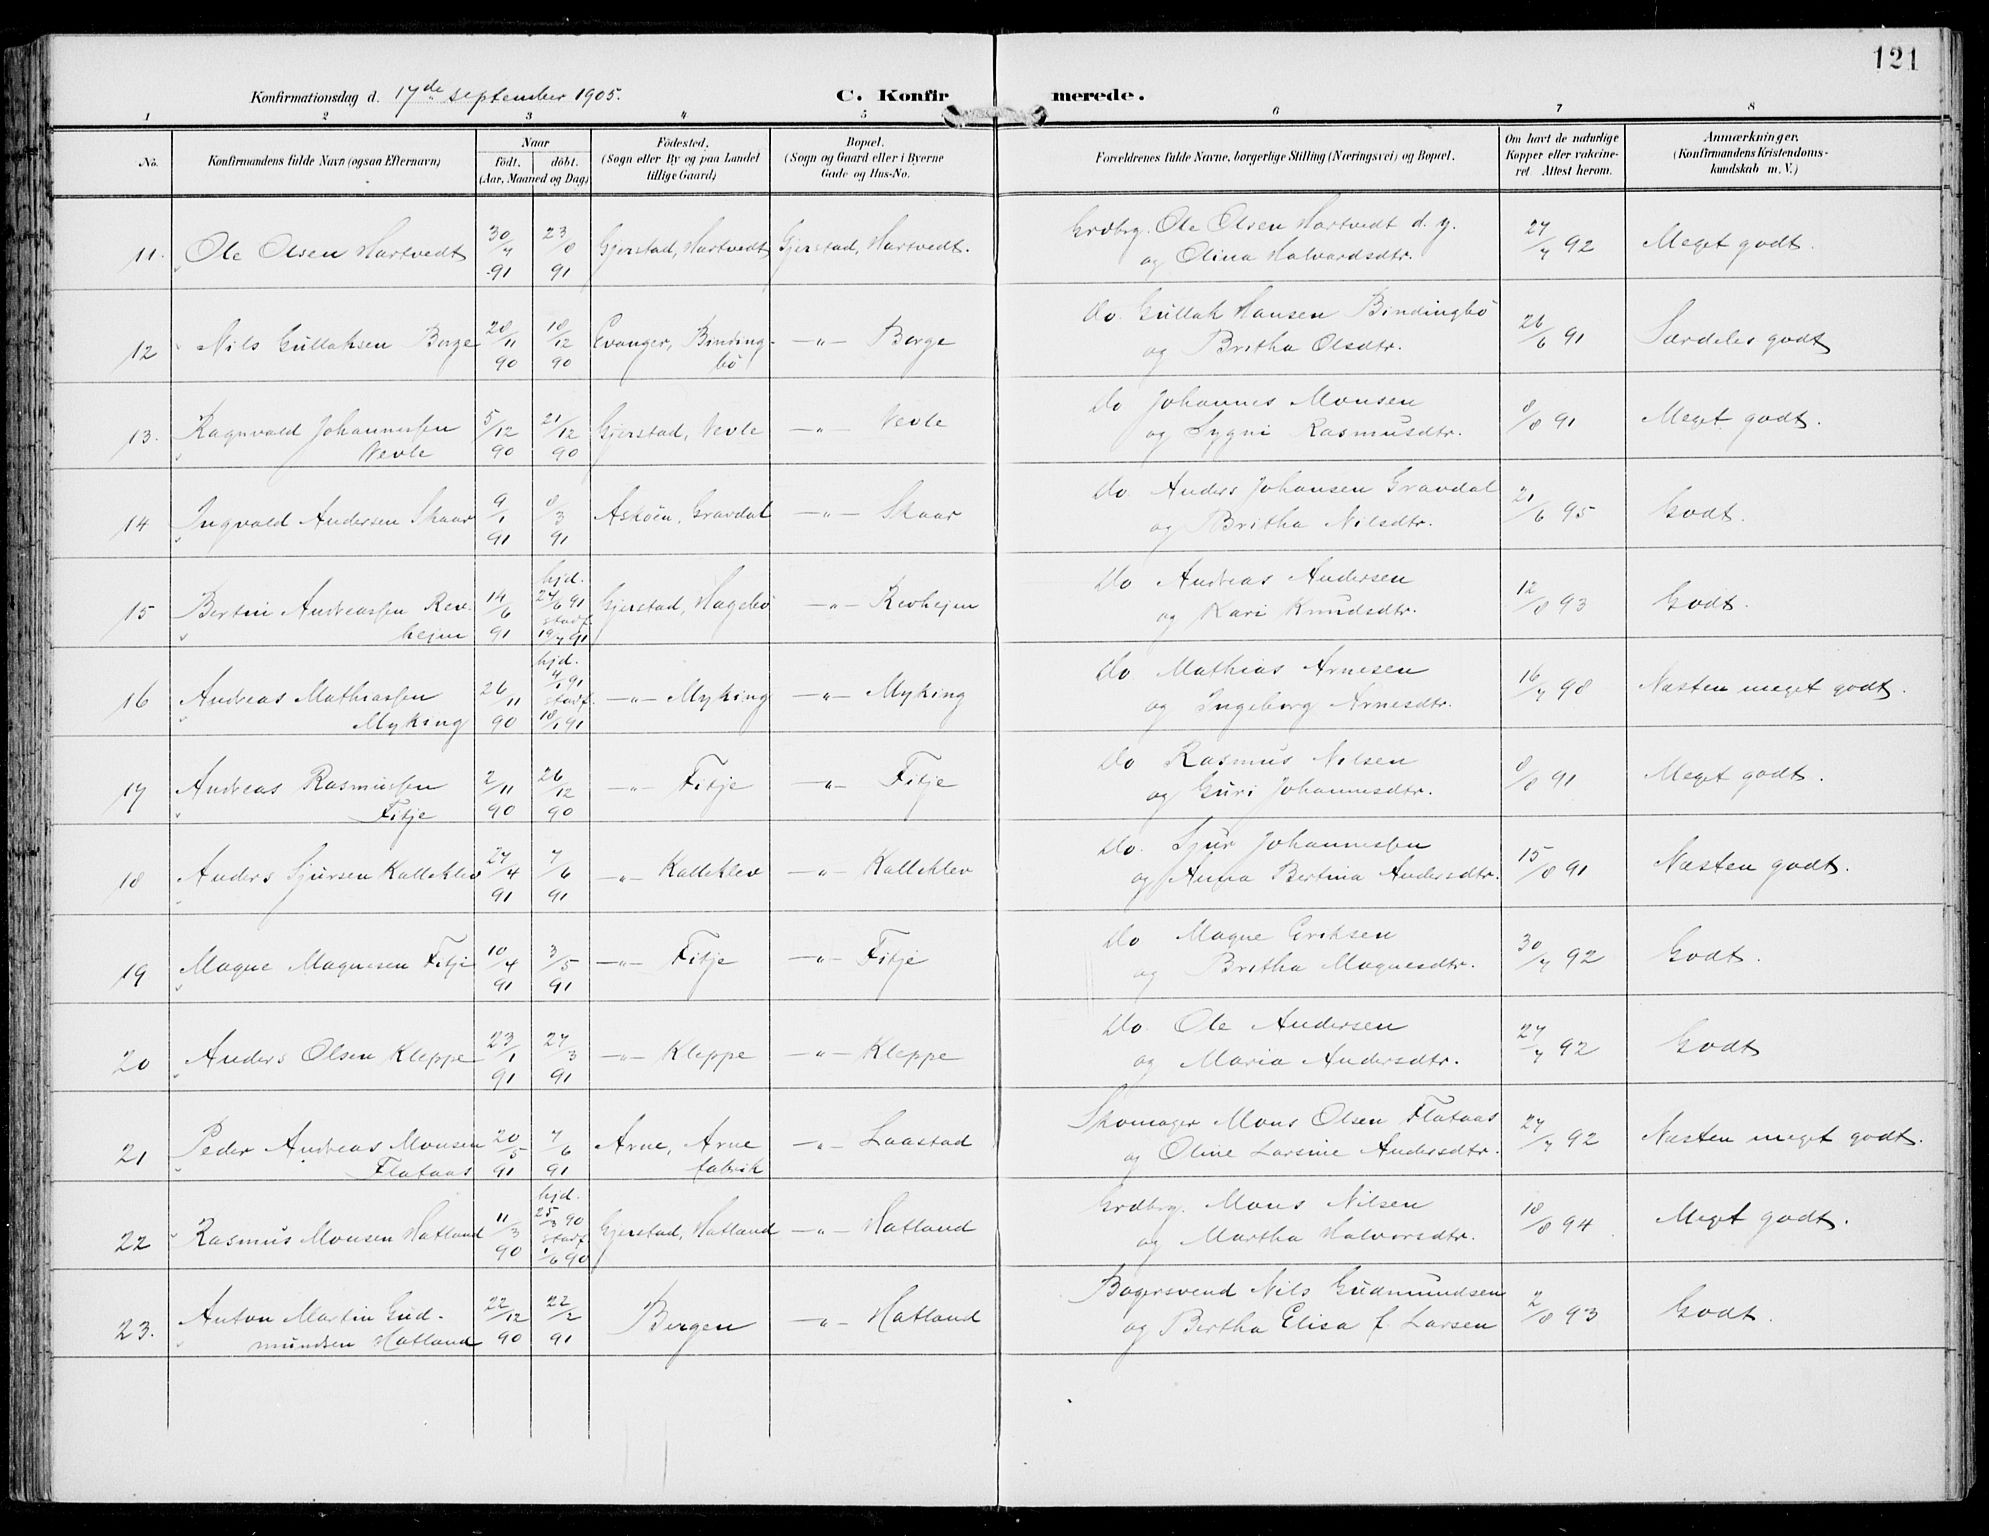 121
Konfirmationsdag d. 17de september 1905.
C. Konfirmerede.
1 2 3 4 5 6 7 8
No.
Konfirmandens fulde Navn (ogsaa Efternavn)
Naar
født, døbt.
(Aar, Maaned og Dag)
Fødested.
(Sogn eller By og paa Landet
tillige Gaard)
Bopæl.
(Sogn og Gaard eller i Byerne
Gade og Hus-No.
Forældrenes fulde Navne, borgerlige Stilling (Næringsvei) og Bopæl.
Om havt de naturlige
Kopper eller vakcine-
ret Attest herom.
Anmærkninger.
(Konfirmandens Kristendoms-
kundskab m. V.)
11. Ole Olsen Hartvedt 30/7 91 23/8 91 Gjerstad, Hartvedt Gjerstad, Hartvedt. Grdbrg. Ole Olsen Hartvedt d. y.
og Olina Halvardsdtr. 27/7 92 Meget godt.
12 Nils Gullaksen Borge 28/11 90 18/12 90 Evanger, Binding-
bö —„— Borge Do. Gullak Hansen Bindingbö
og Britha Olsdtr. 26/6 91 Særdeles godt
13. Ragnvald Johannessen
Nevle 5/12 90 21/12 90 Gjerstad, Nevle —„— Nevle Do Johannes Monsen
og Sygni Rasmusdtr. 8/8 91 Meget godt.
14 Ingvald Andersen Skaar 9/1 91 8/3 91 Asköen, Gravdal —„— Skaar Do. Anders Johansen Gravdal
og Britha Nilsdtr. 21/6 95 Godt.
15 Bertin Andreassen Rev-
hejm 14/6 91 hjd.
27/6 91
stadf.
19/7 91 Gjerstad, Hagebö —„— Revhejm Do Andreas Andersen
og Kari Knudsdtr. 12/8 93 Godt.
16 Andreas Mathiassen
Myking 26/11 90 hjd.
4/1 91
stadf.
18/1 91 —„— Myking —„— Myking Do Mathias Arnesen
og Ingeborg Arnesdtr. 16/7 98 Næsten meget godt.
17 Andreas Rasmussen
Fitje 2/11 90 26/12 90 —„— Fitje —„— Fitje Do Rasmus Nilsen
og Guri Johannesdtr. 8/8 91 Meget godt.
18 Anders Sjursen Kalleklev 27/4 91 7/6 91 —„— Kalleklev —„— Kalleklev Do. Sjur Johannessen
og Anna Bertina Andersdtr. 15/8 91 Næsten godt.
19 Magne Magnesen Fitje 10/4 91 3/5 91 —„— Fitje —„— Fitje Do Magne Eriksen
og Britha Magnesdtr. 30/7 92 Godt.
20 Anders Olsen Kleppe 23/1 91 27/3 91 —„— Kleppe —„— Kleppe Do. Ole Andersen
og Maria Andersdtr. 27/7 92 Godt
21 Peder Andreas Monsen
Flataas 20/5 91 7/6 91 Arne, Arne
fabrik —„— Laastad Skomager Mons Olsen Flataas
og Oline Larsine Andersdtr. 27/7 92 Næsten meget godt.
22 Rasmus Monsen Hatland 11/3 90 hjd.
25/3 90
stadf.
1/6 90 Gjerstad, Hatland —„— Hatland Grdbrg. Mons Nilsen
og Martha Halvorsdtr. 18/8 94 Meget godt.
23. Anton Martin Gud-
mundsen Hatland 22/12 90 22/2 91 Bergen —„— Hatland Bagersvend Nils Gudmundsen
og Bertha Elisa f. Larsen 2/8 93 Godt.